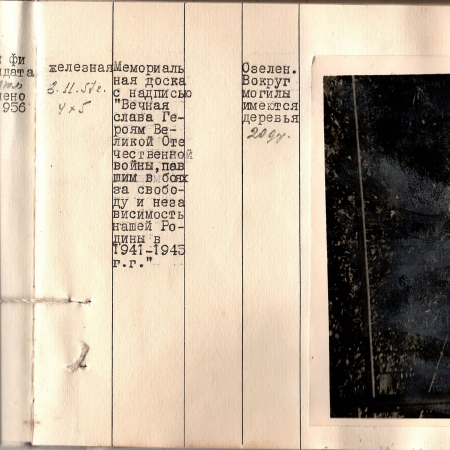 фи
дата
ено
956
железная
3.11.57г.
4х5
Мемориаль
ная доска
с надписью
"Вечная
слава Ге-
роям Ве-
ликой Оте
чественной
войны,пав
шим в боях
за свобо-
ду и неза
висимость
нашей Ро-
дины в
1941-1945
г.г."
Озелен.
Вокруг
могилы
имеются
деревья